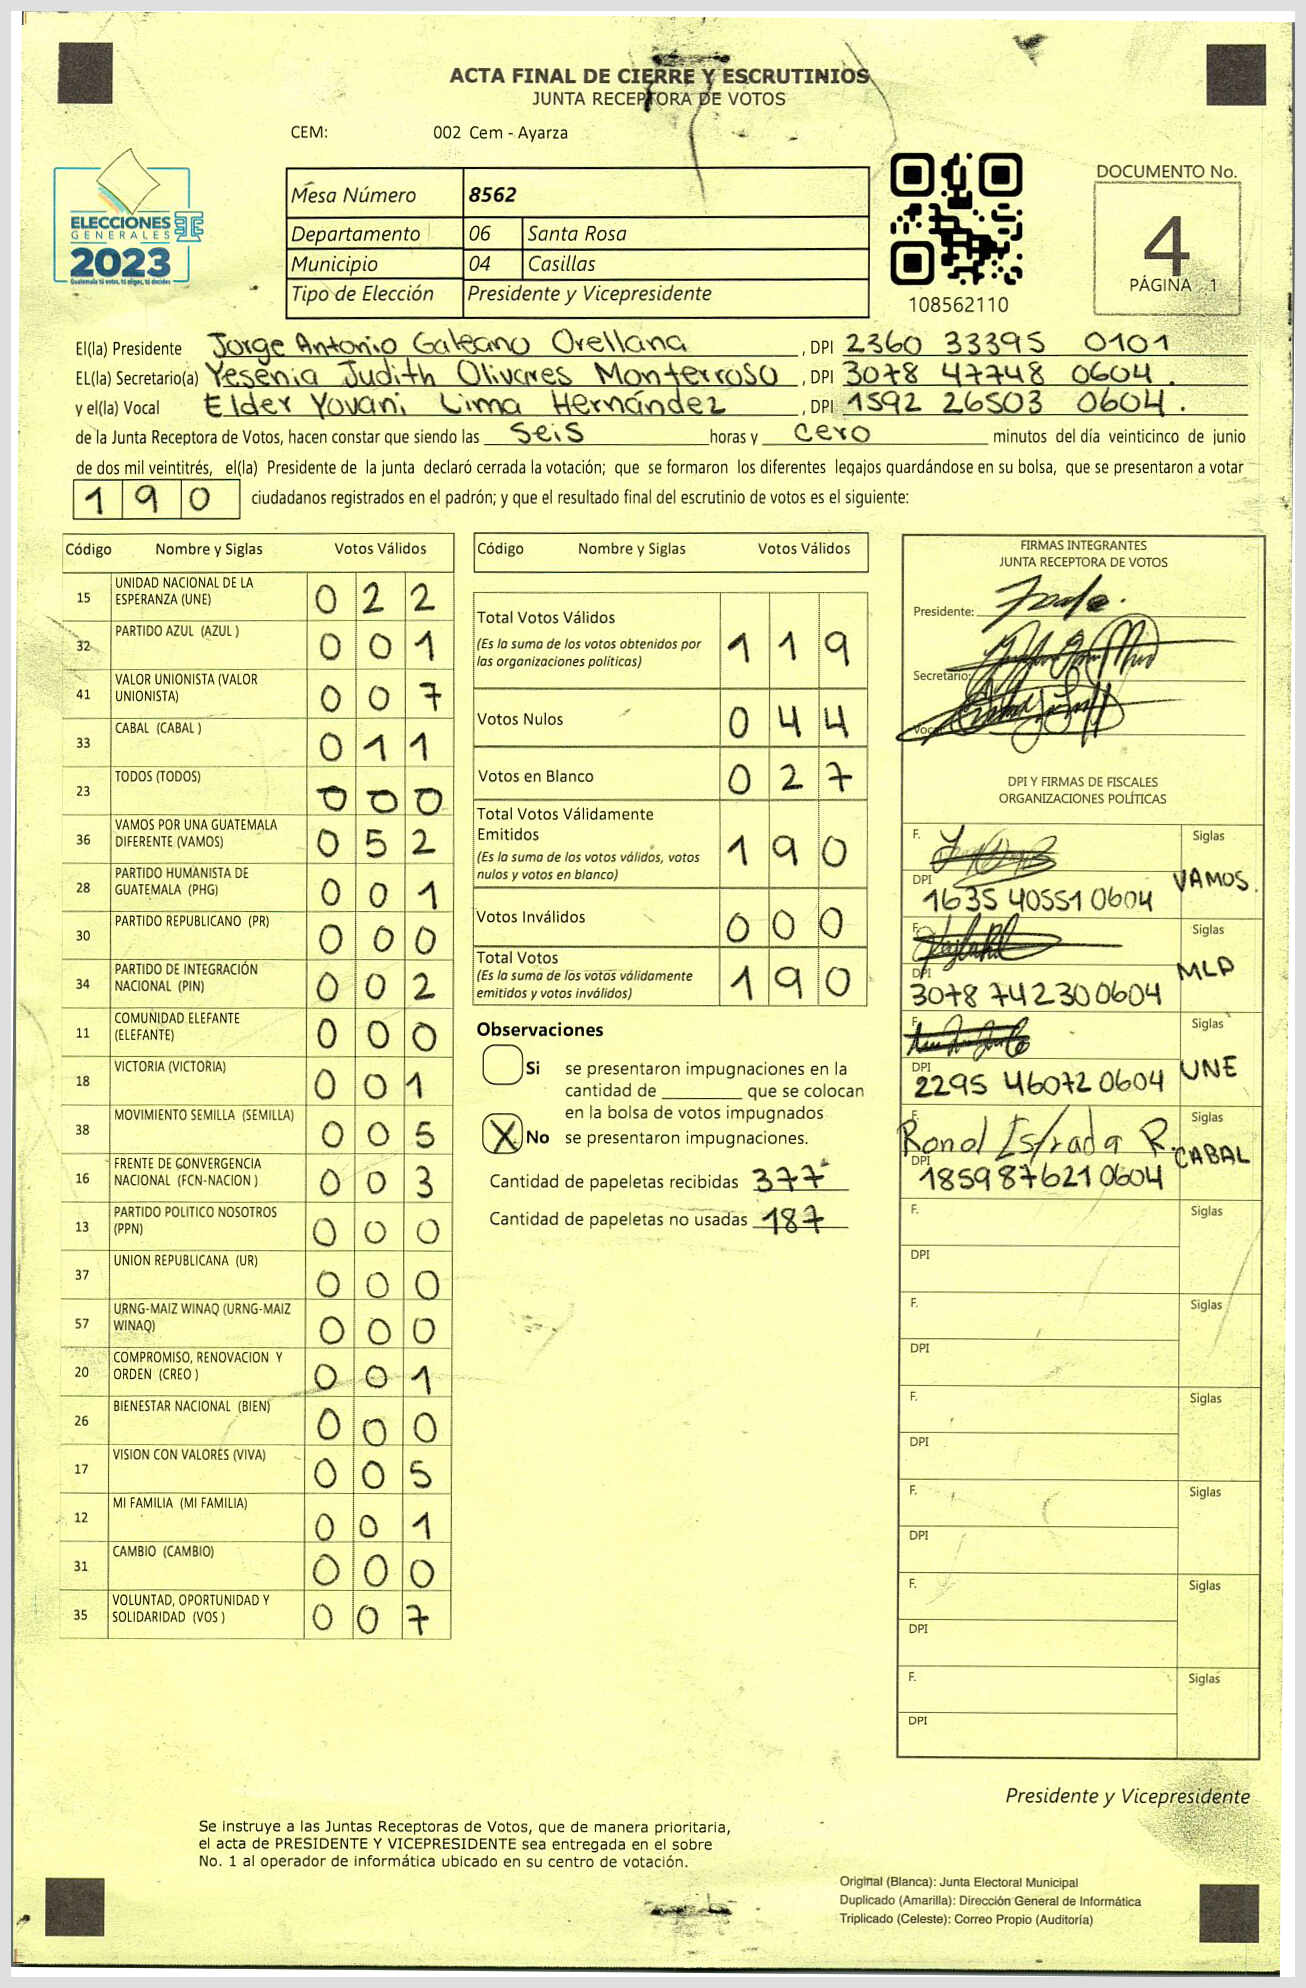 ACTA FINAL DE CIERRE Y ESCRUTINIOS
JUNTA RECEPTORA DE VOTOS
CEM: 002 Cem - Ayarza
ELECCIONES
GENERALES
2023
Guatemala tú votas, tú eliges, tú decides
Mesa Número 8562
Departamento 06 Santa Rosa
Municipio 04 Casillas
Tipo de Elección Presidente y Vicepresidente
108562110
DOCUMENTO No.
4
PÁGINA 1
El(la) Presidente Jorge Antonio Galeano Orellana , DPI 2360 33395 0101
EL(la) Secretario(a) Yesenia Judith Olivares Monterroso , DPI 3078 47748 0604.
y el(la) Vocal Elder Yovani Lima Hernández , DPI 1592 26503 0604.
de la Junta Receptora de Votos, hacen constar que siendo las seis horas y cero minutos del día veinticinco de junio
de dos mil veintitrés, el(la) Presidente de la junta declaró cerrada la votación; que se formaron los diferentes legajos guardándose en su bolsa, que se presentaron a votar
190 ciudadanos registrados en el padrón; y que el resultado final del escrutinio de votos es el siguiente:
Código Nombre y Siglas Votos Válidos
15 UNIDAD NACIONAL DE LA ESPERANZA (UNE) 022
32 PARTIDO AZUL (AZUL ) 001
41 VALOR UNIONISTA (VALOR UNIONISTA) 007
33 CABAL (CABAL ) 011
23 TODOS (TODOS) 000
36 VAMOS POR UNA GUATEMALA DIFERENTE (VAMOS) 052
28 PARTIDO HUMANISTA DE GUATEMALA (PHG) 001
30 PARTIDO REPUBLICANO (PR) 000
34 PARTIDO DE INTEGRACIÓN NACIONAL (PIN) 002
11 COMUNIDAD ELEFANTE (ELEFANTE) 000
18 VICTORIA (VICTORIA) 001
38 MOVIMIENTO SEMILLA (SEMILLA) 005
16 FRENTE DE CONVERGENCIA NACIONAL (FCN-NACION ) 003
13 PARTIDO POLITICO NOSOTROS (PPN) 000
37 UNION REPUBLICANA (UR) 000
57 URNG-MAIZ WINAQ (URNG-MAIZ WINAQ) 000
20 COMPROMISO, RENOVACION Y ORDEN (CREO ) 001
26 BIENESTAR NACIONAL (BIEN) 000
17 VISION CON VALORES (VIVA) 005
12 MI FAMILIA (MI FAMILIA) 001
31 CAMBIO (CAMBIO) 000
35 VOLUNTAD, OPORTUNIDAD Y SOLIDARIDAD (VOS ) 007
Código Nombre y Siglas Votos Válidos
Total Votos Válidos 119
(Es la suma de los votos obtenidos por
las organizaciones políticas)
Votos Nulos 044
Votos en Blanco 027
Total Votos Válidamente
Emitidos 190
(Es la suma de los votos válidos, votos
nulos y votos en blanco)
Votos Inválidos 000
Total Votos 190
(Es la suma de los votos válidamente
emitidos y votos inválidos)
Observaciones
Si se presentaron impugnaciones en la
cantidad de ________ que se colocan
en la bolsa de votos impugnados
X No se presentaron impugnaciones.
Cantidad de papeletas recibidas 377
Cantidad de papeletas no usadas 187
FIRMAS INTEGRANTES
JUNTA RECEPTORA DE VOTOS
Presidente:
Secretario:
Vocal
DPI Y FIRMAS DE FISCALES
ORGANIZACIONES POLÍTICAS
F. Siglas
VAMOS.
DPI
1635 40551 0604
F. Siglas
MLP
DPI
3078 74230 0604
F. Siglas
UNE
DPI
2295 46072 0604
F. Siglas
Ronal Estrada R. CABAL
DPI
1859 87621 0604
F. Siglas
DPI
F. Siglas
DPI
F. Siglas
DPI
F. Siglas
DPI
F. Siglas
DPI
F. Siglas
DPI
Presidente y Vicepresidente
Se instruye a las Juntas Receptoras de Votos, que de manera prioritaria,
el acta de PRESIDENTE Y VICEPRESIDENTE sea entregada en el sobre
No. 1 al operador de informática ubicado en su centro de votación.
Original (Blanca): Junta Electoral Municipal
Duplicado (Amarilla): Dirección General de Informática
Triplicado (Celeste): Correo Propio (Auditoría)